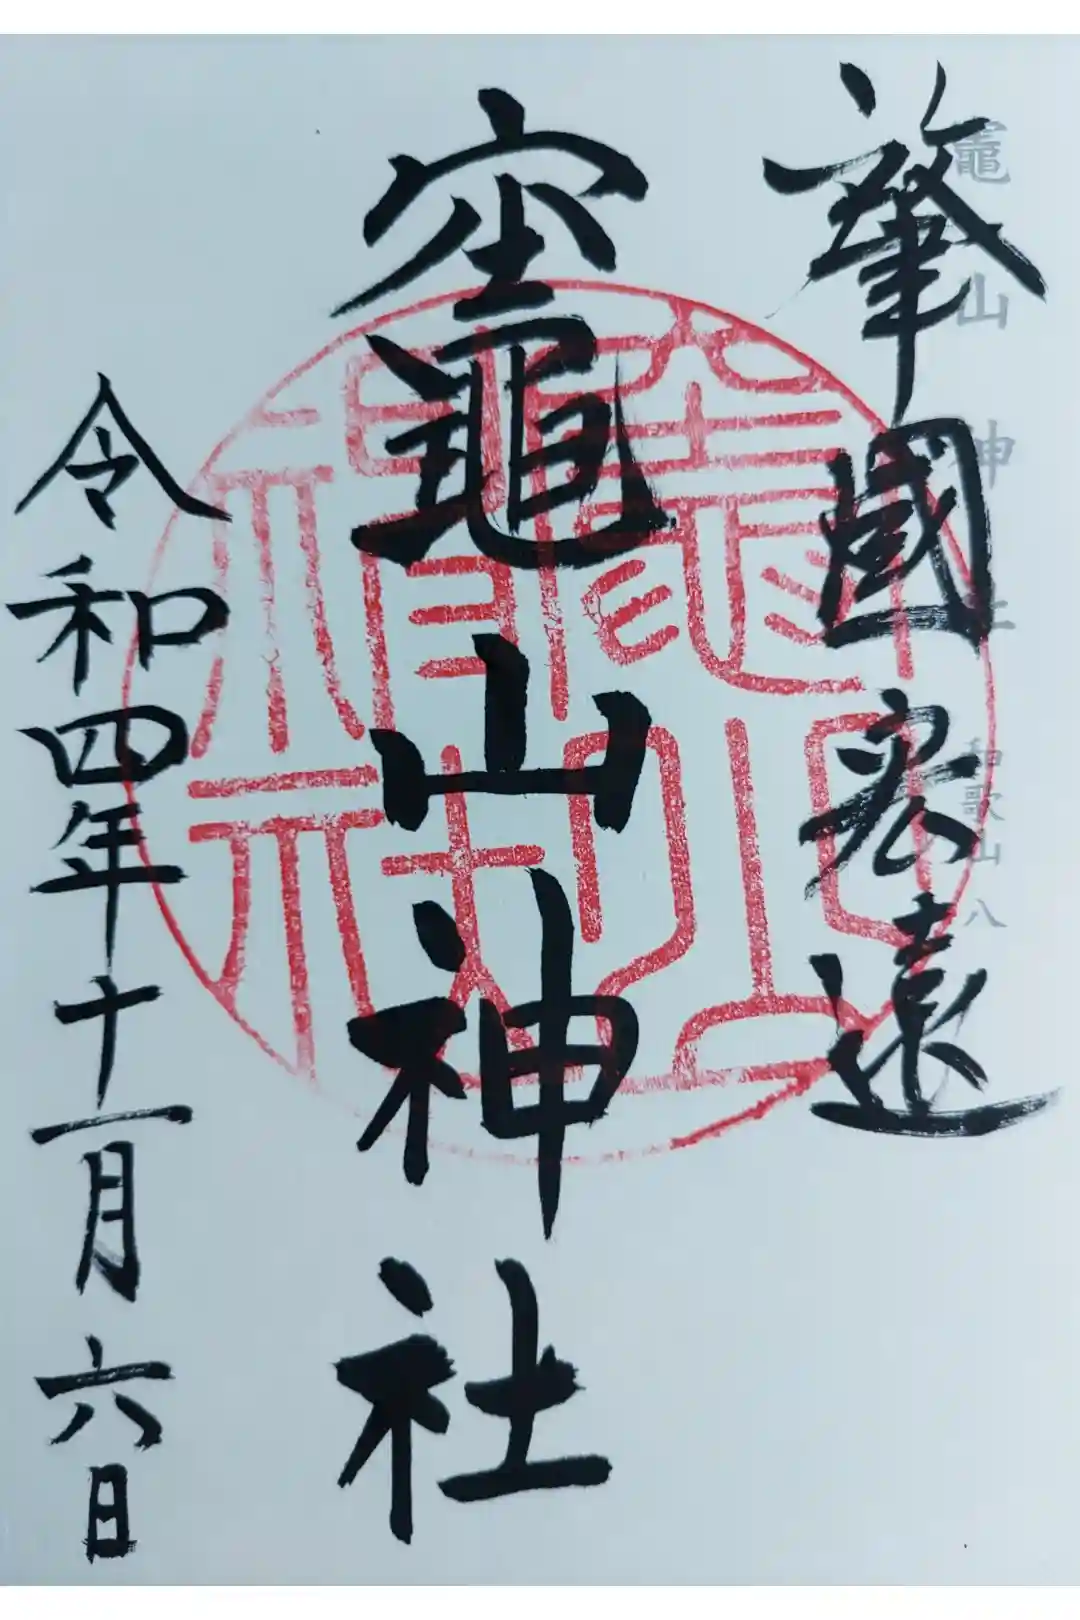 竈山神社 和歌山八
肇國宏遠
竈山神社
令和四年十一月六日